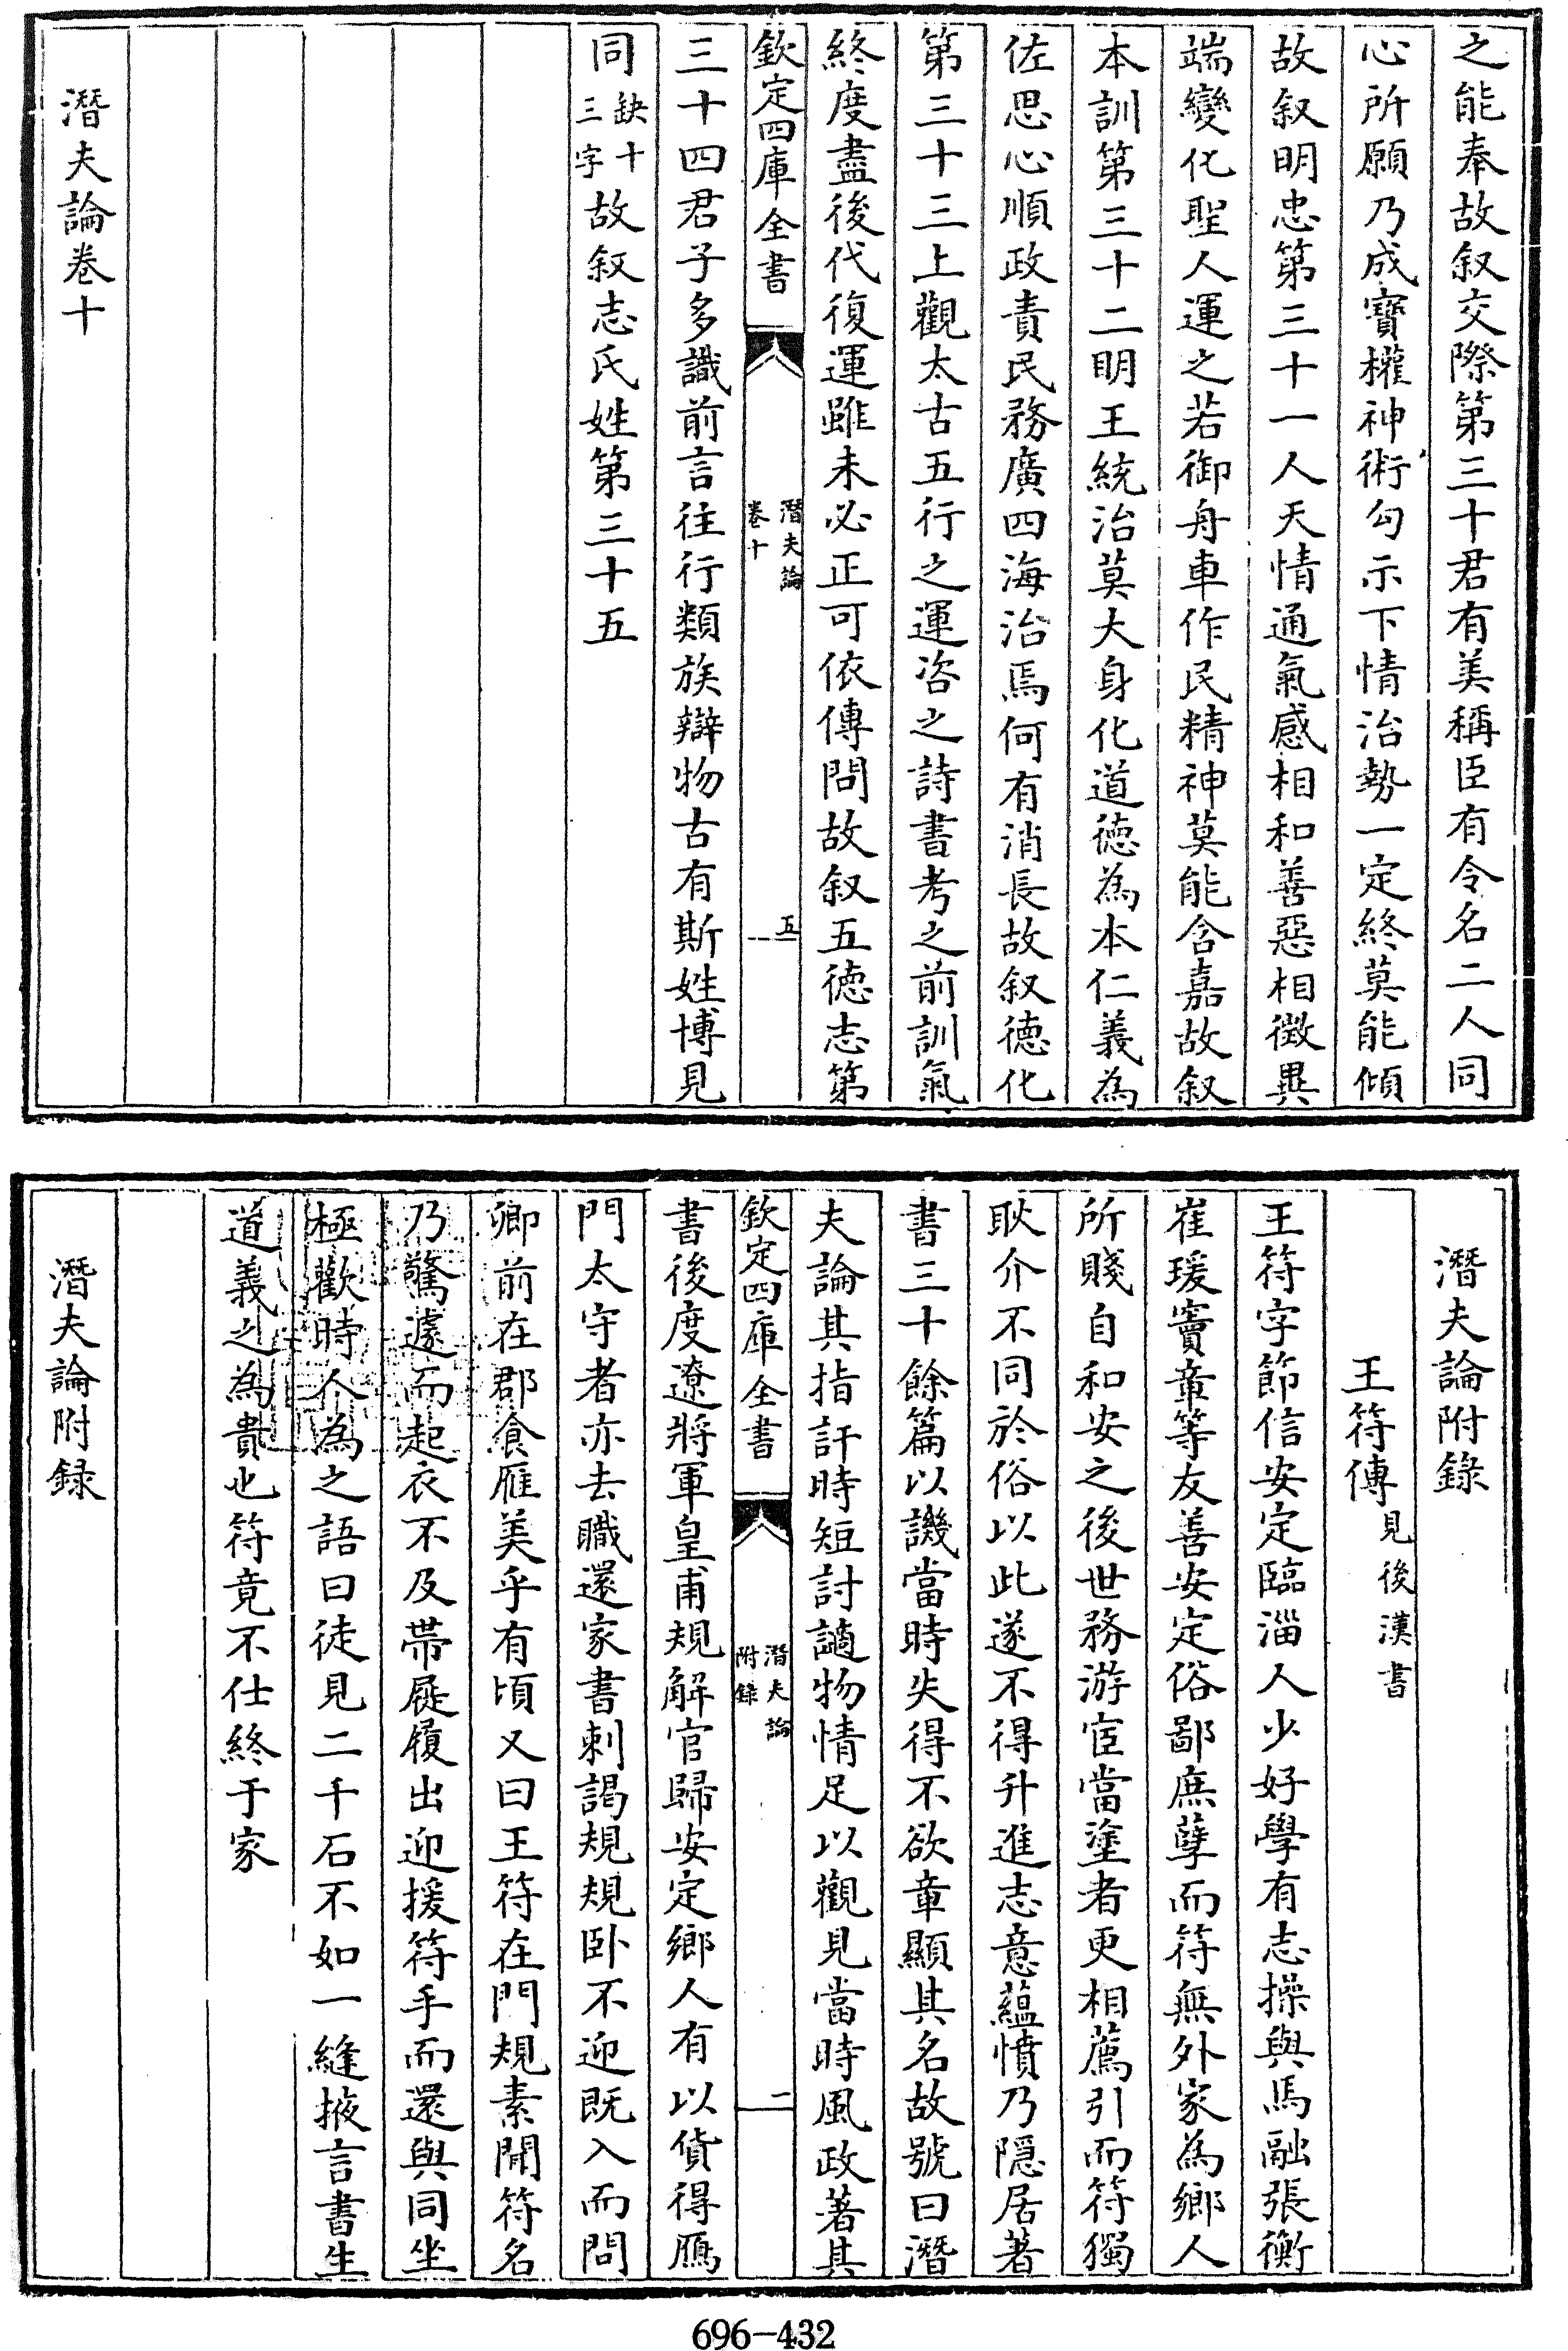 之能奉故叙交際第三十君有美稱臣有令名二人同
心所願乃成寶權神術勾示下情治勢一定終莫能傾
故叙明忠第三十一人天情通氣感相和善惡相徴異
端變化聖人運之若御舟車作民精神莫能含嘉故叙
本訓第三十二明王統治莫大身化道徳為本仁義為
佐思心順政責民務廣四海治焉何有消長故叙德化
第三十三上觀太古五行之運咨之詩書考之前訓氣
終度盡後代復運雖未必正可依傳問故叙五徳志第
欽定四庫全書
潛夫論
卷十
五
三十四君子多識前言往行類族辯物古有斯姓博見
同缺十三字故叙志氏姓第三十五
潛夫論卷十
潛夫論附錄
王符傳見後漢書
王符字節信安定臨淄人少好學有志操與馬融張衡
崔瑗竇章等友善安定俗鄙庶孽而符無外家為鄉人
所賤自和安之後世務游宦當塗者更相薦引而符獨
耿介不同於俗以此遂不得升進志意蘊憤乃隠居著
書三十餘篇以譏當時失得不欲章顯其名故號曰潛
夫論其指訐時短討讁物情足以觀見當時風政著其
欽定四庫全書
潛夫論
附錄
二
書後度遼將軍皇甫規解官歸安定鄉人有以貨得鴈
門太守者亦去職還家書刺謁規規卧不迎既入而問
卿前在郡食雁美乎有頃又曰王符在門規素聞符名
乃驚遽而起衣不及帶屣履出迎援符手而還與同坐
極歡時人為之語曰徒見二千石不如一縫掖言書生
道義之為貴也符竟不仕終于家
潛夫論附録
696-432